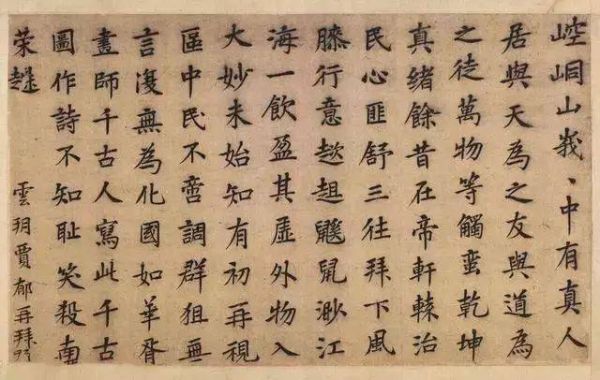 崆峒山峩、中有真人
居與天為之友與道為
之徒萬物等觸蛮乾坤
真緒餘昔在帝軒轅治
民心匪舒三往拜下風
膝行意趑趄鼴鼠渺江
海一飲盈其虛外物入
大妙未始知有初再視
區中民不啻調群狙無
言復無為化國如華胥
畫師千古人寫此千古
圖作詩不知恥笑殺南
荣趎
雲玥賈郁再拜